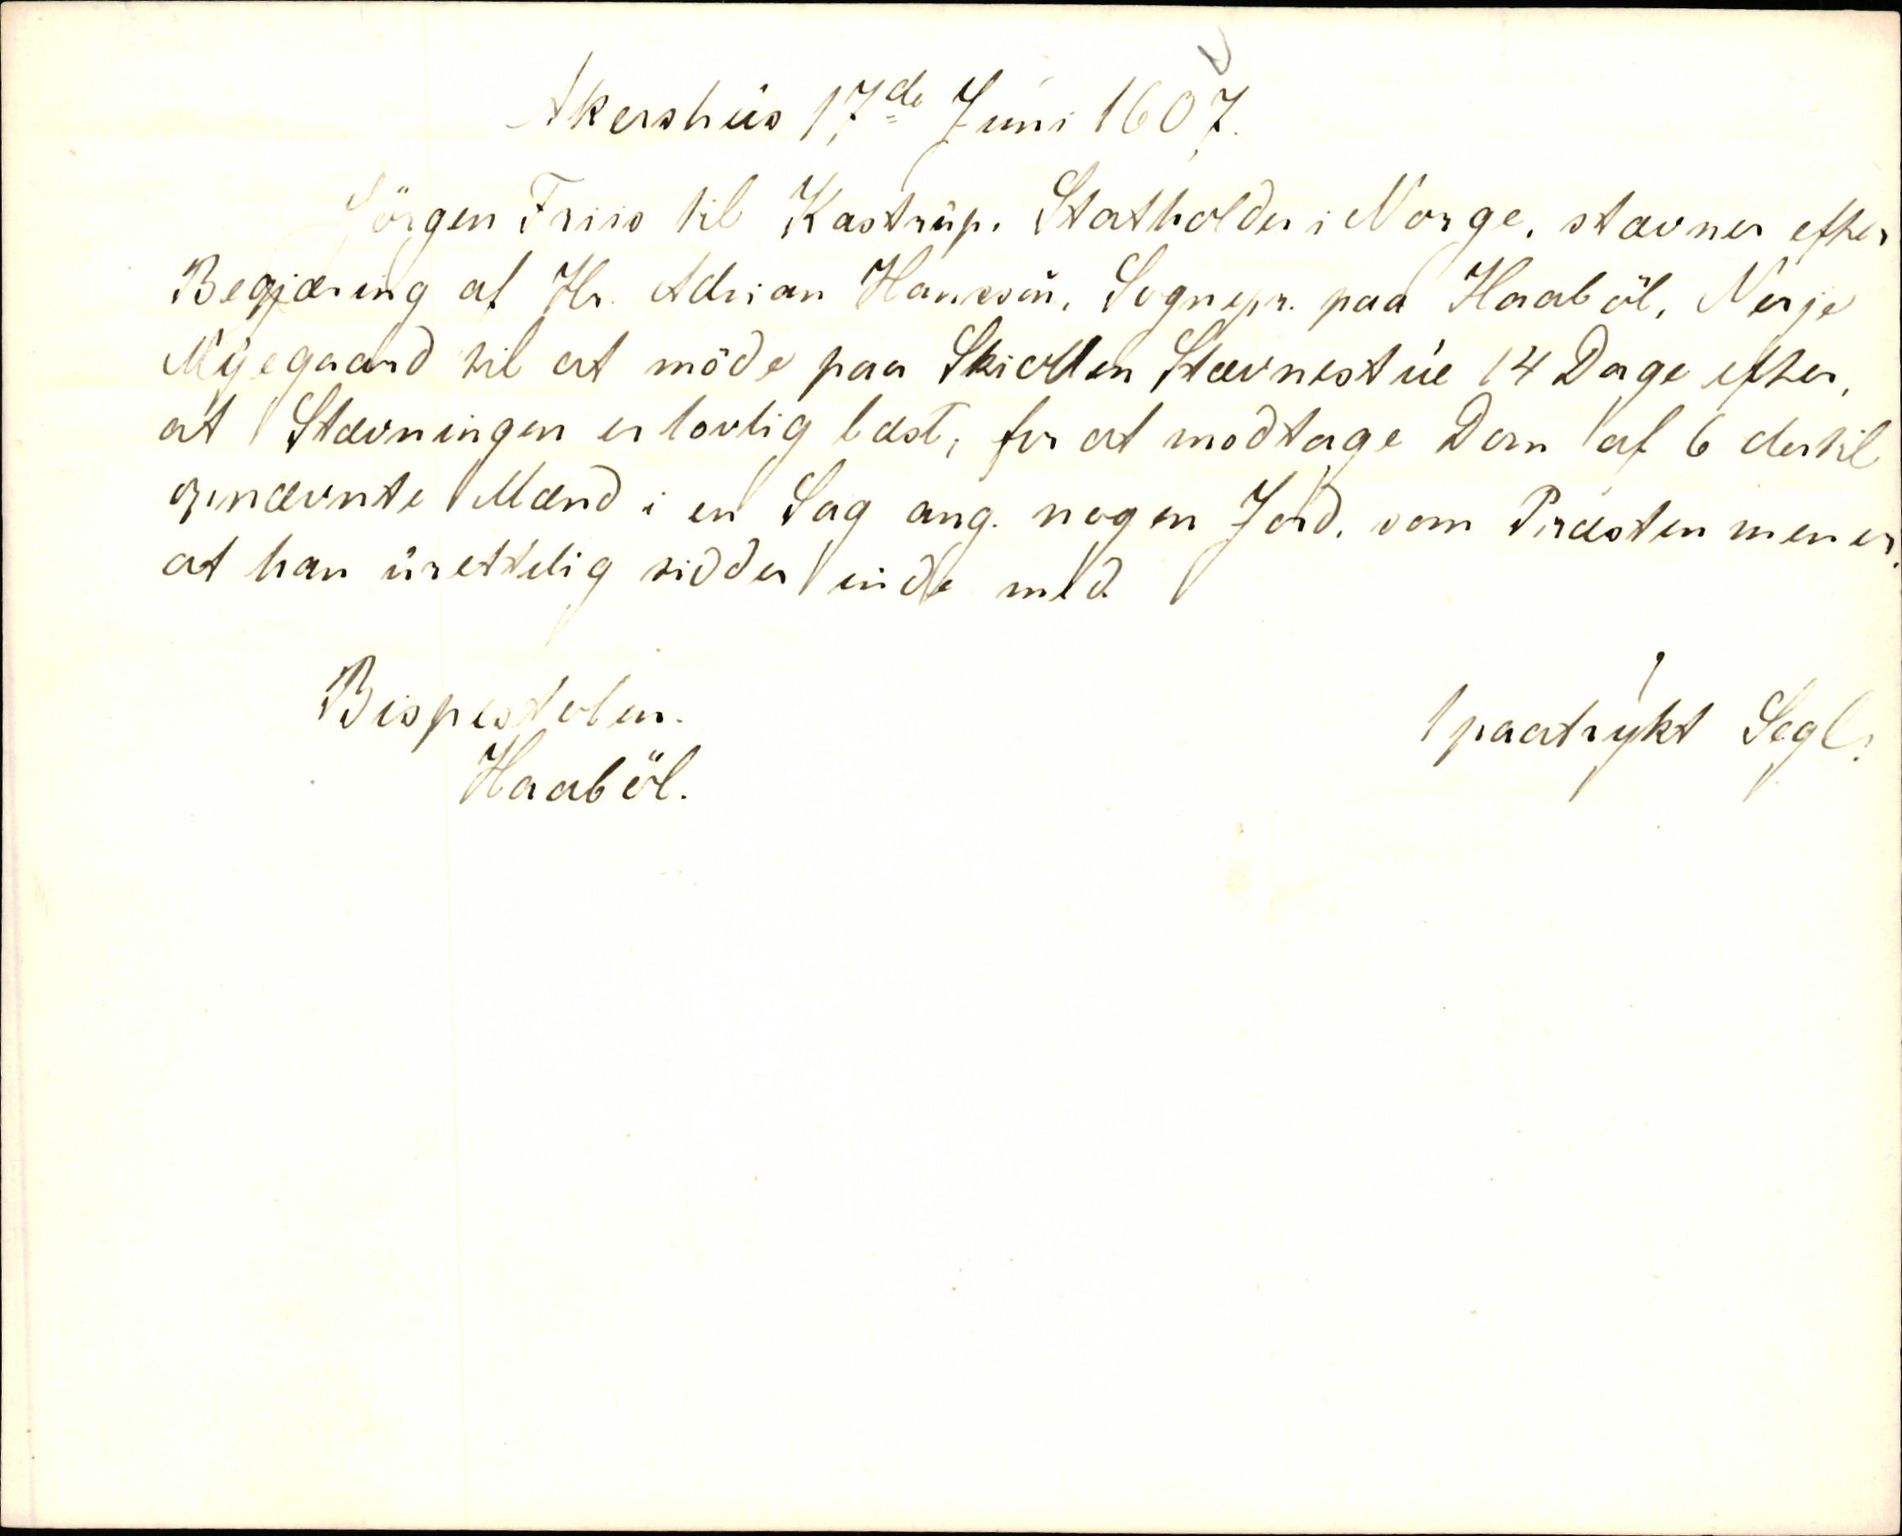 Akershus 17de Juni 1607.
Jörgen Friis til Kastrup. Statholder i Norge, stævner efter
Begjæring af Hr. Adrian Hanssön, Sognepr. paa Haaböl, Nerje
Myegaard til at möde paa Skiollen Stævnestue 14 Dage efter,
at Stævningen er lovlig læst, for at modtage Dom af 6 dertil
opnævnte Mænd i en Sag ang. nogen Jord, som Præsten mener,
at han urettelig sidder inde med.
Bispestolen.
1 paatrykt Segl.
Haaböl.